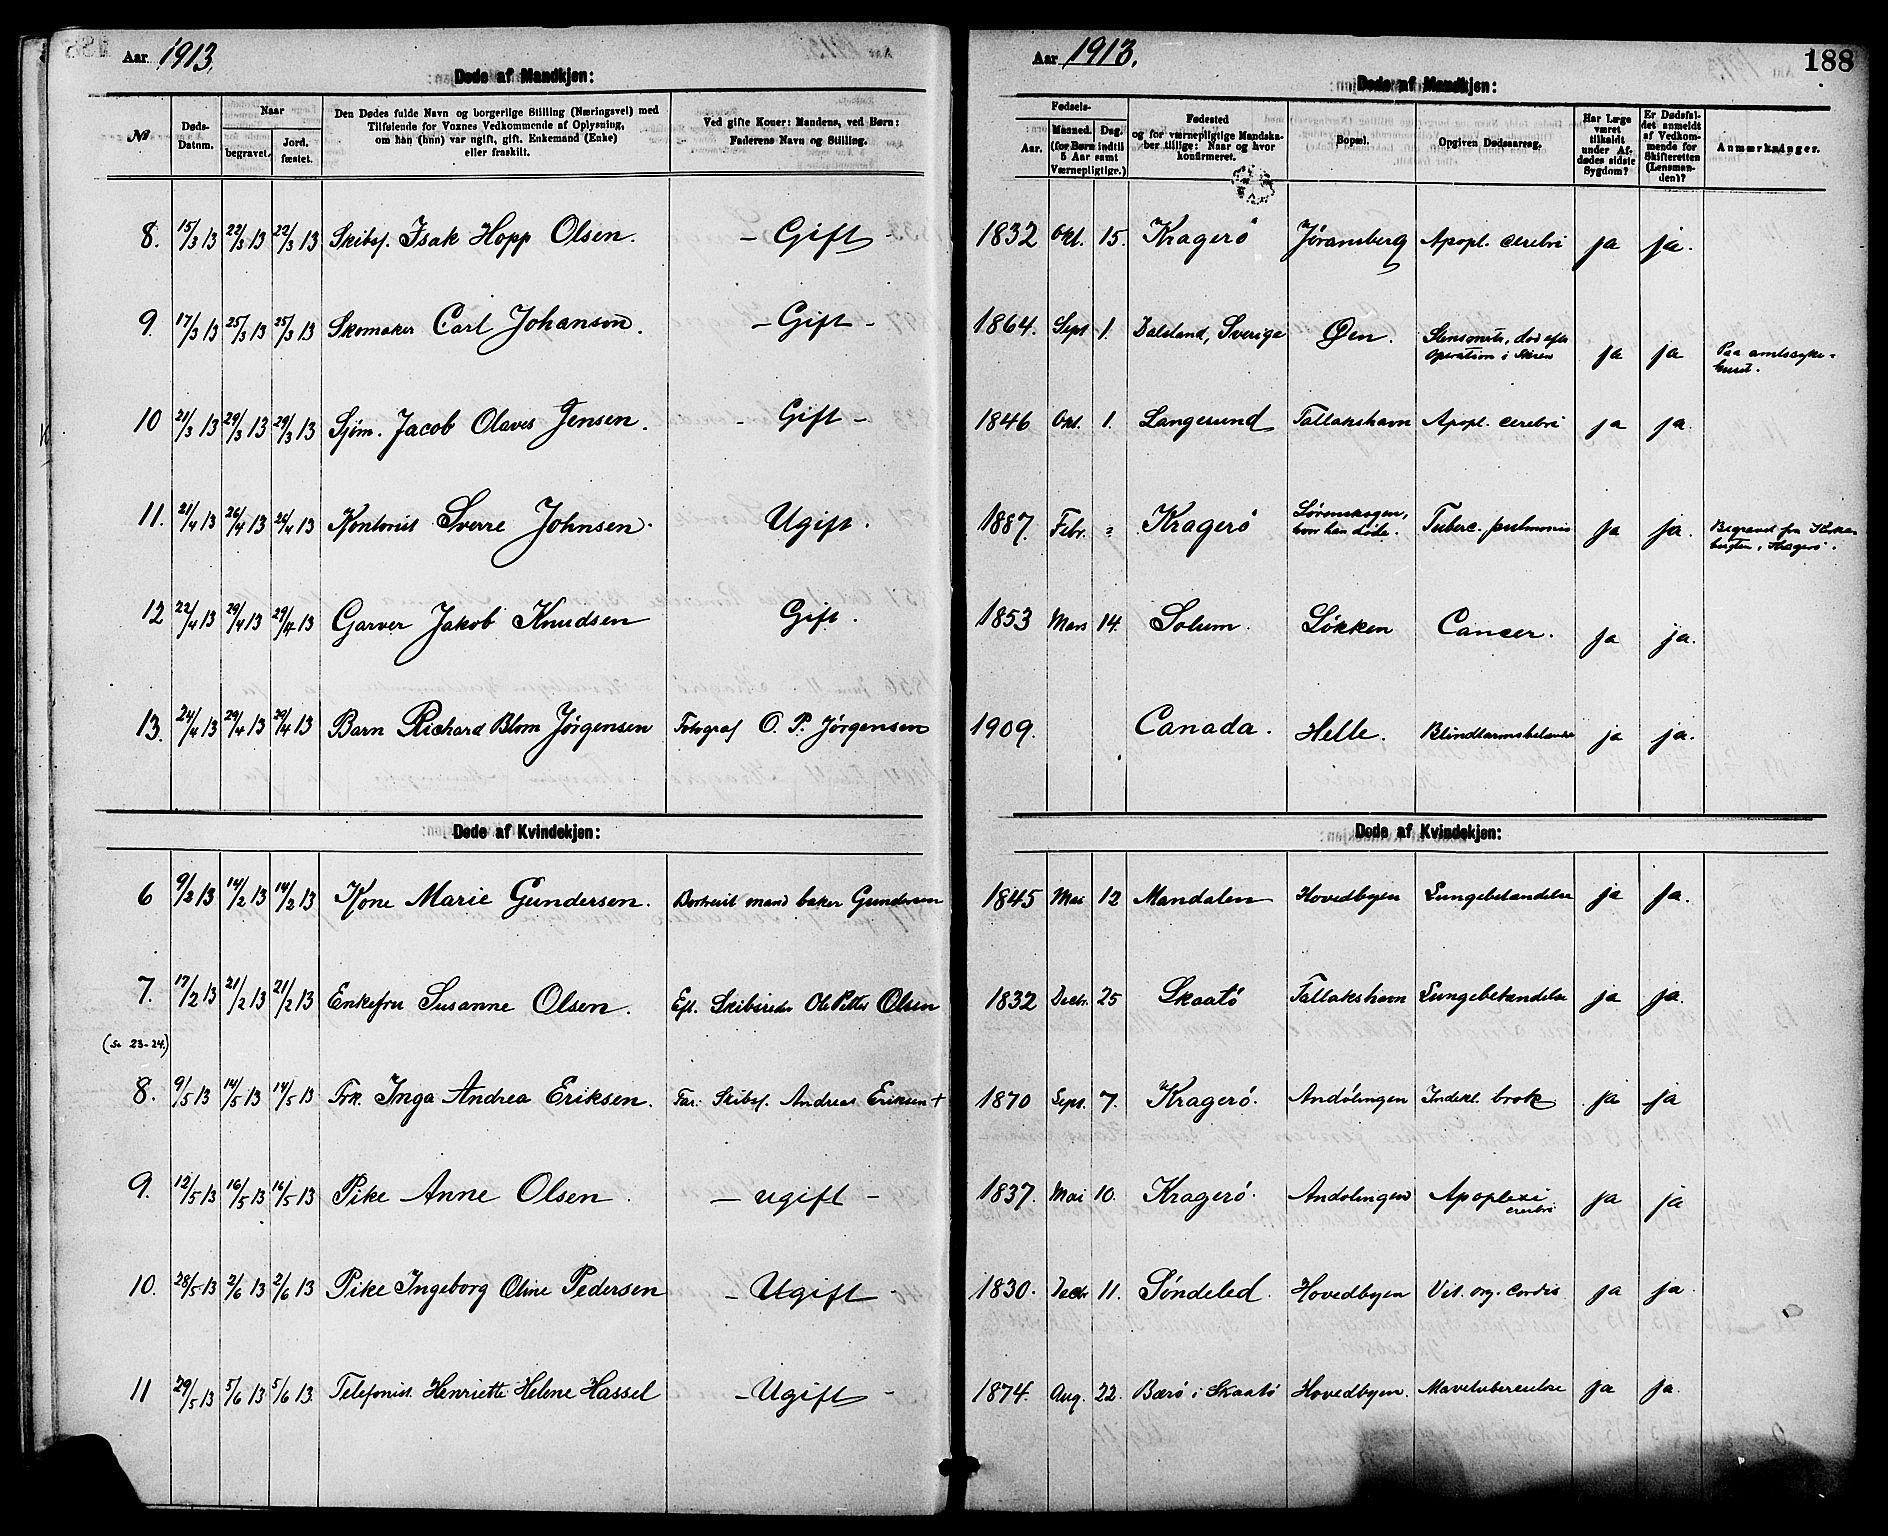 Aar 1913.
Døde af Mandkjøn:
№
Døds-Datum.
Naar
begravet.
Jord-fæstet.
Den Dødes fulde Navn og borgerlige Stilling (Næringsvei) med
Tilføiende for Voxnes Vedkommende af Oplysning,
om han (hun) var ugift, gift, Enkemand (Enke)
eller fraskilt.
Ved gifte Koner: Mandens, ved Børn:
Faderens Navn og Stilling.
8. 15/3 13 22/3 13 22/3 13 Skibsf. Isak Hopp Olsen. – Gift –
9. 17/3 13 25/3 13 25/3 13 Skomaker Carl Johanson. – Gift –
10 21/3 13 29/3 13 29/3 13 Sjøm. Jacob Olaves Jensen. – Gift –
11. 21/4 13 26/4 13 26/4 13 Kontorist Sverre Johnsen. Ugift.
12 22/4 13 29/4 13 29/4 13 Garver Jakob Knudsen Gift.
13. 24/4 13 29/4 13 29/4 13 Barn Richard Blom Jørgensen Fotograf O. P. Jørgensen
Døde af Kvindekjøn:
6 9/2 13 14/2 13 14/2 13 Kone Marie Gundersen. Bortreist mand baker Gundersen
7. 17/2 13 21/2 13 21/2 13 Enkefru Susanne Olsen. Eft. Skibsreder Ole Petter Olsen
(Se 23-24.)
8. 9/5 13 14/5 13 14/5 13 Frk. Inga Andrea Eriksen. Far: Skibsf. Andreas Eriksen +
9. 12/5 13 16/5 13 16/5 13 Pike Anne Olsen. – ugift –
10. 28/5 13 2/6 13 2/6 13 Pike Ingeborg Oline Pedersen – Ugift –
11 29/5 13 5/6 13 5/6 13. Telefonist. Henriette Helene Hassel – Ugift –
Aar 1913.
188
Døde af Mandkjøn:
Fødsels-
Aar.
Maaned.
Dag.
(for Børn indtil
5 Aar samt
Værnepligtige.)
Fødested
og for værnepligtige Mandska-
ber tillige: Naar og hvor
konfirmeret.
Bopæl.
Opgiven Dødsaarsag.
Har Læge
været
tilkaldt
under Af-
dødes sidste
Sygdom?
Er Dødsfal-
det anmeldt
af Vedkom-
mende for
Skifteretten
(Lensman-
den)?
Anmærkninger.
1832 Okt. 15. Kragerö Jøransberg Apopl. cerebri ja ja.
1864. Sept 1. Dalsland, Sverige Øen. død efter operation i Skien ja ja Paa amtssyke-
huset.
1846 Okt. 1. Langesund Tallakshavn Apopl. cerebri ja ja.
1887. Febr. Kragerö
hvor han døde. Tuberc. pulmonis ja ja. Begravet fra Kirke-
bugten, Kragerö.
1853 Mars 14. Solum. Løkken Cancer. ja ja.
1909. Canada. Helle. Blindtarmsbetændelse ja ja.
Døde af Kvindekjøn:
1845 12 Mandalen Hovedbyen Lungebetændelse ja ja.
1832 Decbr. 25 Skaatö Tallakshavn Lungebetændelse ja ja.
1870 Sept. 7. Kragerö. Andölingen brok ja ja
1837. Mai 10. Kragerö. Andölingen Apoplexi
cerebri ja ja
1830. Decbr. 11. Söndeled. Hovedbyen Vit. org. cordis ja ja.
1874. Aug. 22. Bærö i Skaatö Hovedbyen. Mavetuberculose ja ja.